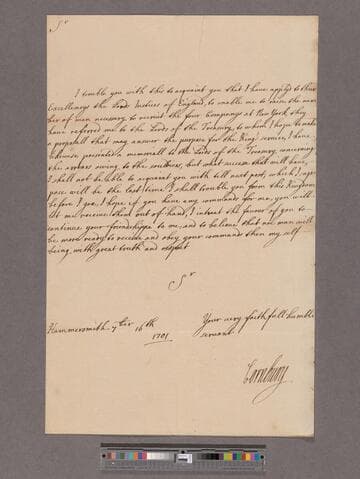 Sr
I trouble you with this to acquaint you that I have apply'd to their
Excellencys the Lords Justices of England, to enable me to raise the num
ber of men necessary to recruit the four Companys at New York, they
have referred me to the Lords of the Treasury, to whom I hope to make
a proposall that may answer the purpose for the Kings service, I have
likewise presented a memoriall to the Lords of the Treasury, concerning
the arrears owing to the souldiers, but what success that will have,
I shall not be able to acquaint you with till next post, which I sup
pose will be the last time I shall trouble you from this Kingdom
before I goe, I hope if you have any commands for me, you will
let me receive them out of hand, I intreat the favour of you to
continue your friendshipp to me, and to believe that noe man will
be more ready to receive and obey your commands then my self
being with great truth and respect
Sr
Hammersmith 7ber 16th
1701
Your very faithfull humble
servant
Cornbury